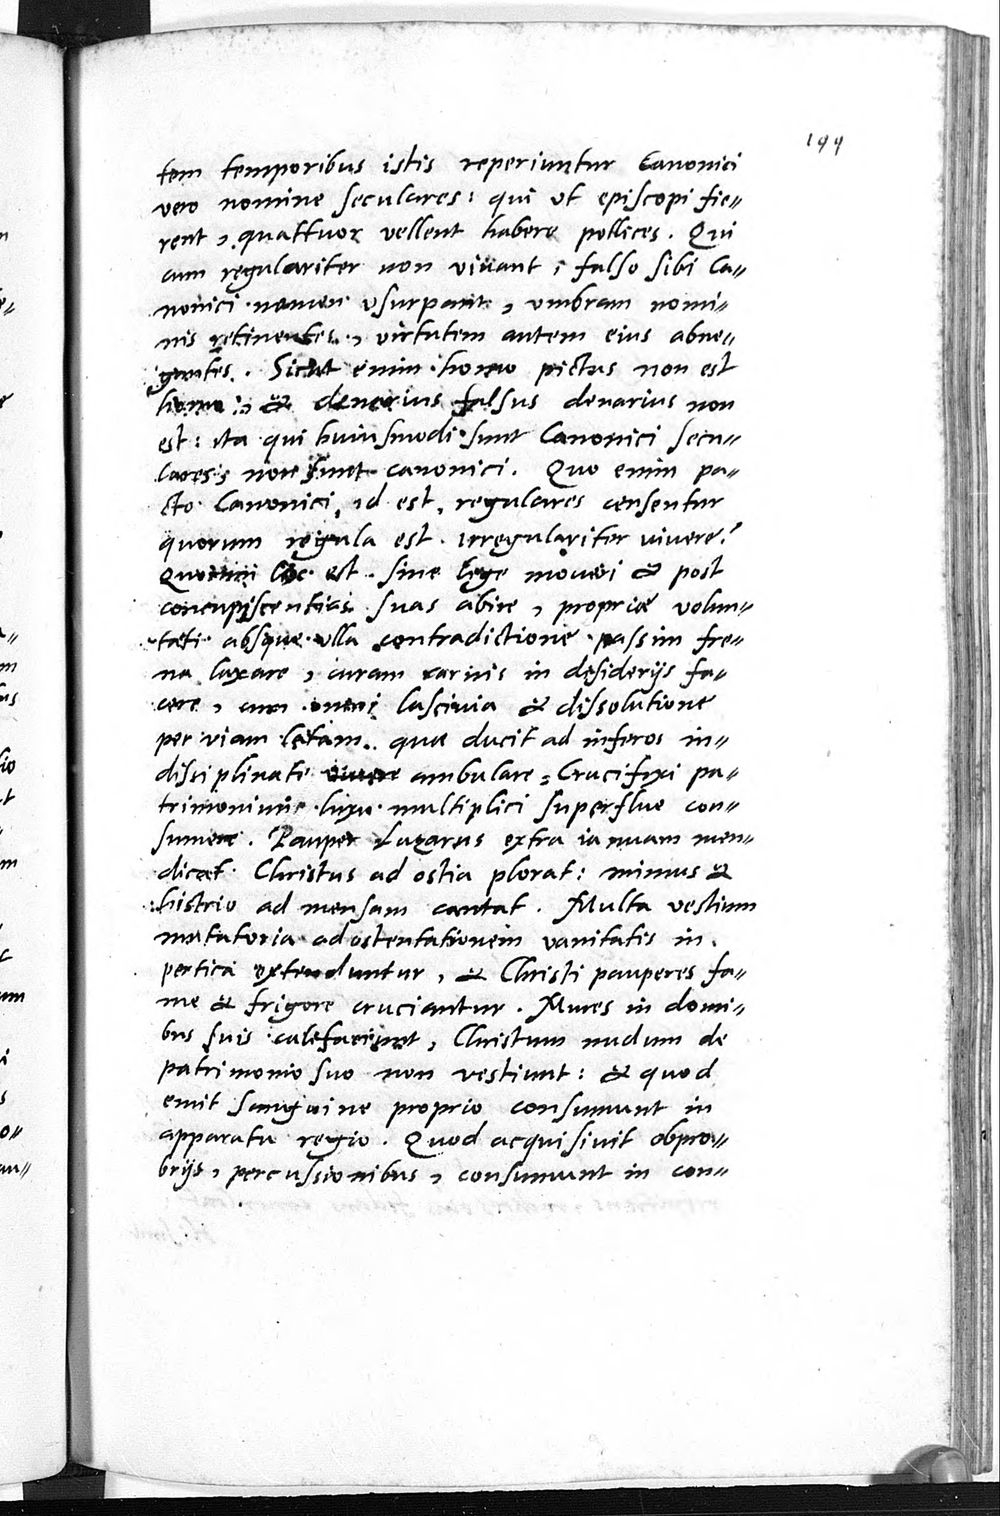 199
tem temporibus istis reperiuntur Canonici
vero nomine seculares: qui ut episcopi fie„
rent, quattuor vellent habere pollices. Qui
cum regulariter non viuant, falso sibi Ca„
nonici nomen vsurpant, vmbram nomi„
nis retinentes, virtutem autem eius abne„
gantes. Sicut enim homo pictus non est
homo: & denarius falsus denarius non
est: ita qui huiusmodi sunt Canonici secu„
lares, non sunt canonici. Quo enim pa„
cto Canonici, id est, regulares censentur
quorum regula est irregulariter viuere?
Quorum lex est sine lege moueri & post
concupiscentias suas abire, propriæ volun„
tati absque vlla contradictione passim fre„
na laxare, curam carnis in desiderijs fa„
cere, cum omni lasciuia & dissolutione
per viam latam, quæ ducit ad inferos in„
disciplinate viuere ambulare, Crucifixi pa„
trimonium luxu multiplici superflue con„
sumere. Pauper Lazarus extra ianuam men„
dicat Christus ad ostia plorat: mimus &
histrio ad mensam cantat. Multa vestium
mutatoria ad ostentationem vanitatis in
pertica extenduntur, & Christi pauperes fa„
me & frigore cruciantur. Mures in domi„
bus suis calefaciunt, Christum nudum de
patrimonio suo non vestiunt: & quod
emit sanguine proprio consumunt in
apparatu regio. Quod acquisiuit obpro„
brijs, percussionibus, consumunt in con„